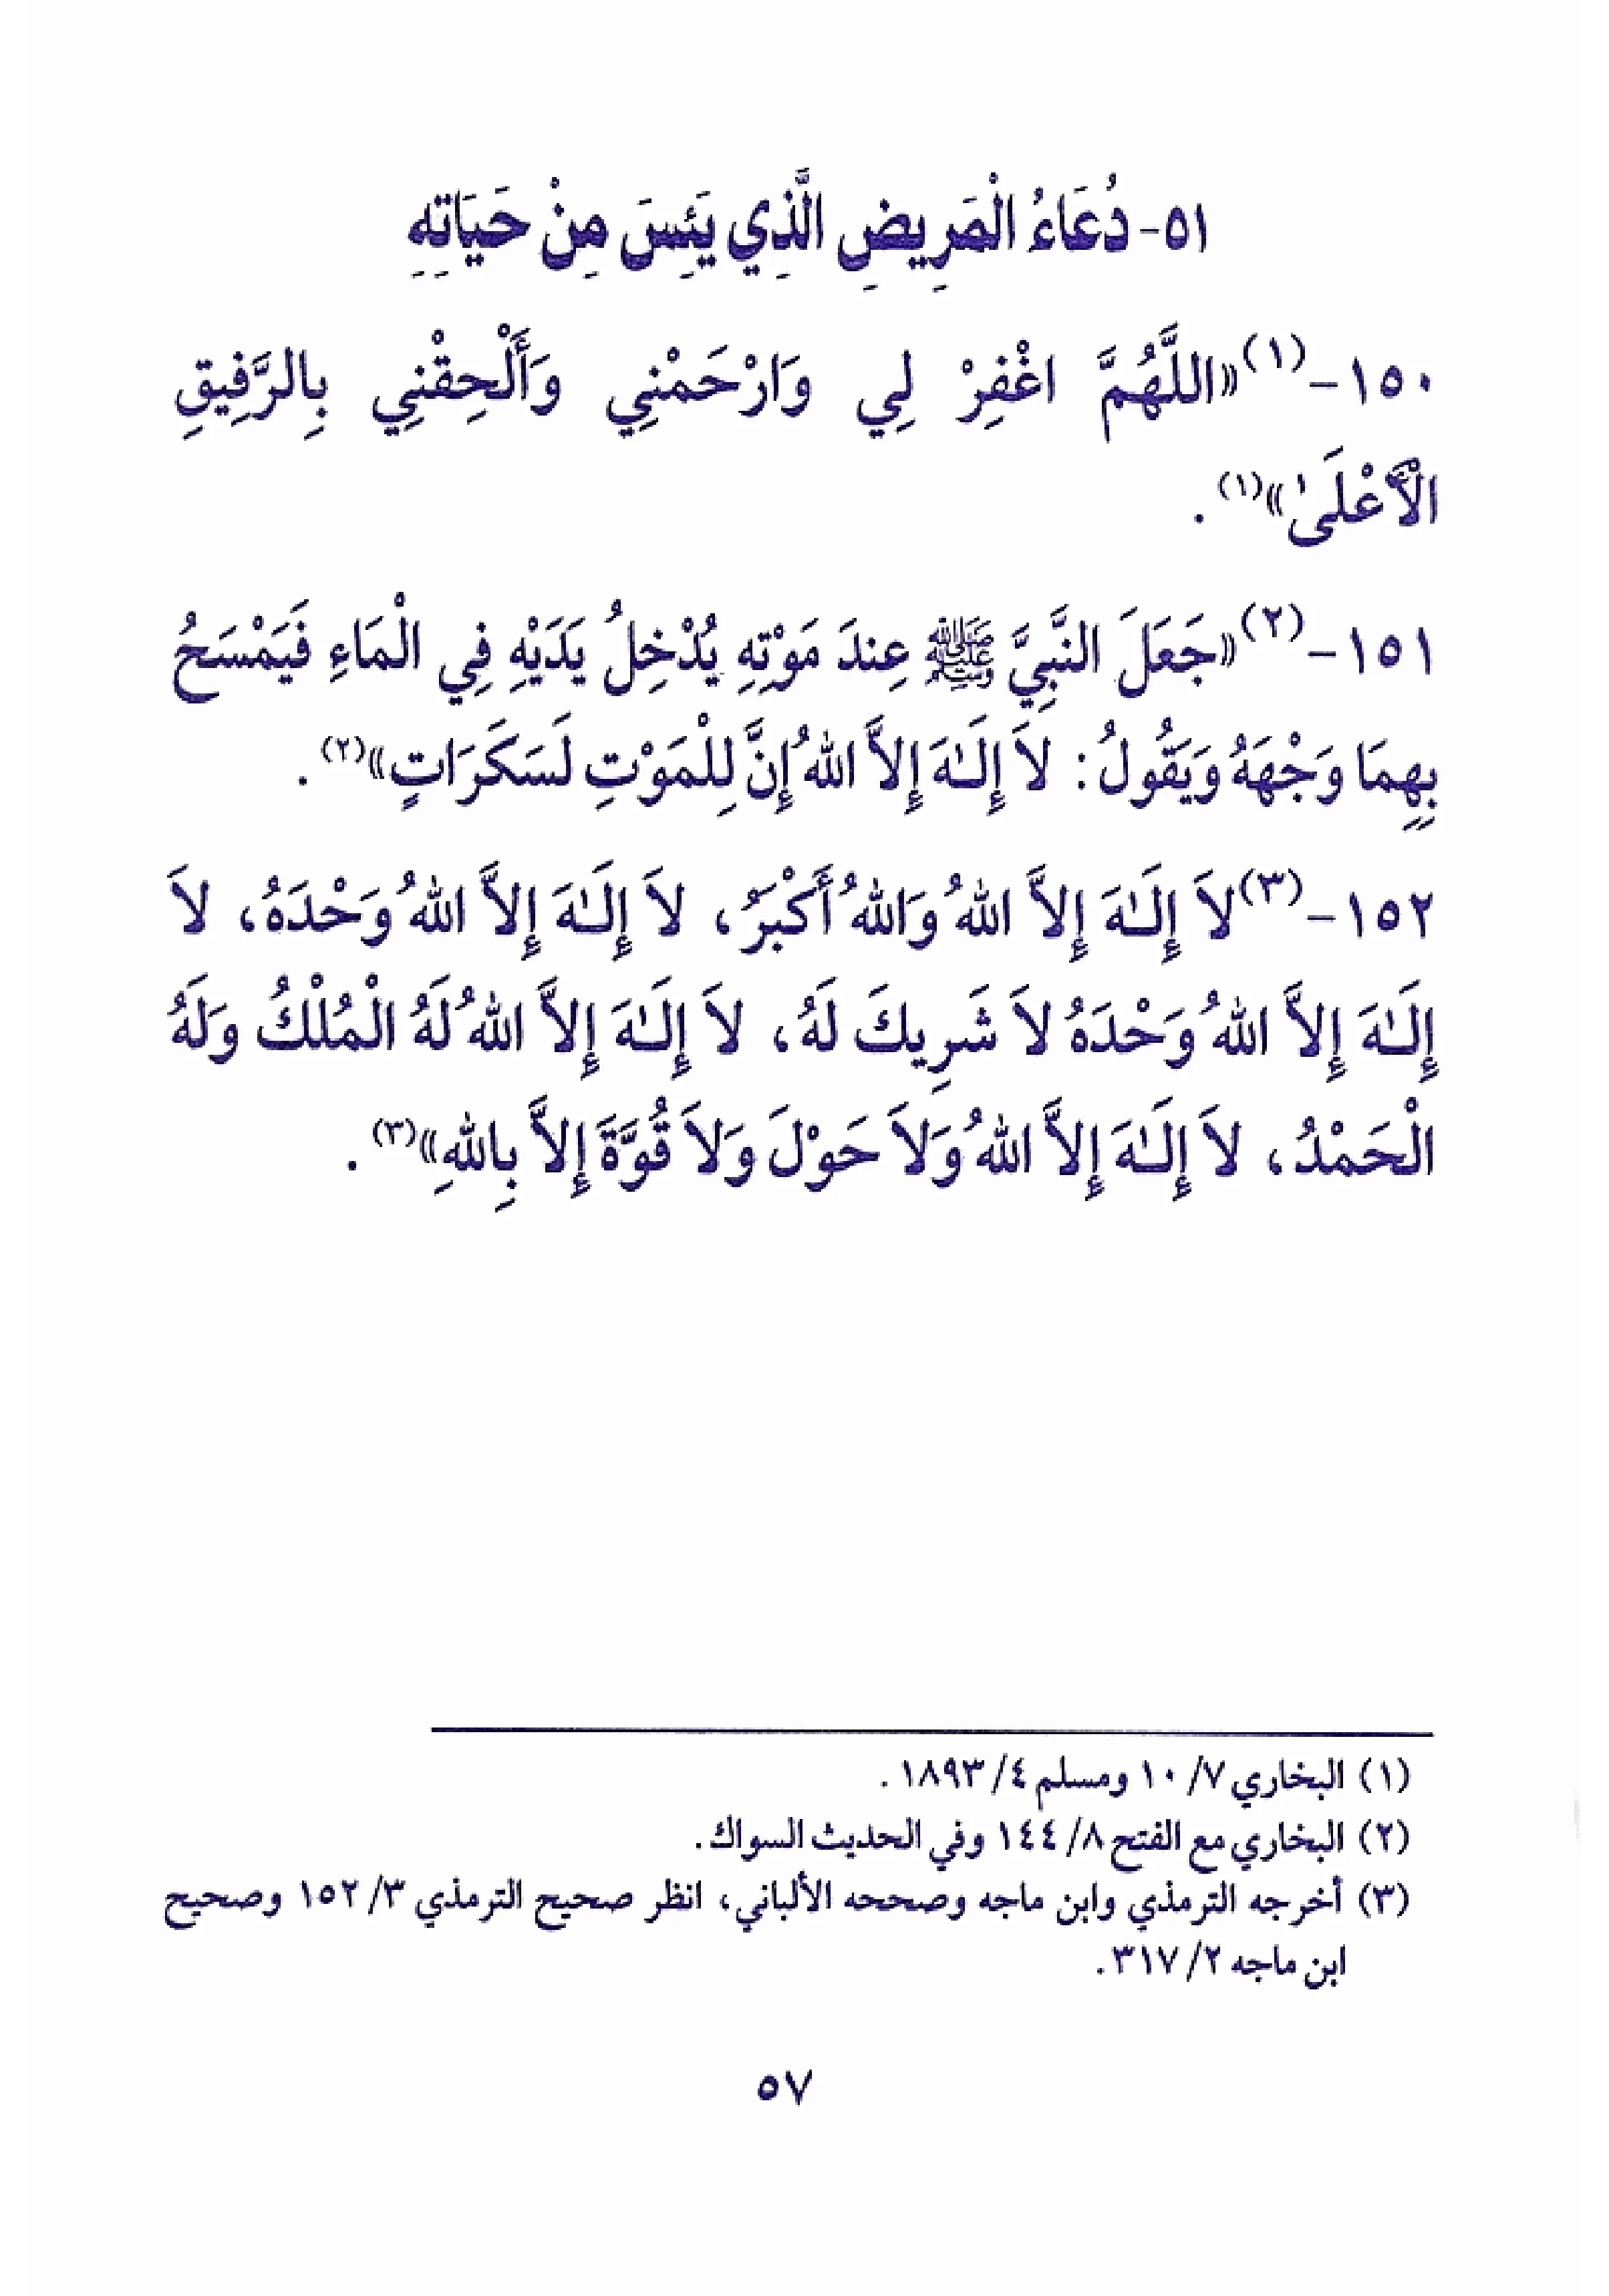 ٥١- دُعَاءُ الْمَرِيضِ الَّذِي يَئِسَ مِنْ حَيَاتِهِ
١٥٠-(١)«اللَّهُمَّ اغْفِرْ لِي وَارْحَمْنِي وَأَلْحِقْنِي بِالرَّفِيقِ
الْأَعْلَىٰ»(١).
١٥١-(٢)«جَعَلَ النَّبِيَّ ﷺ عِندَ مَوْتِهِ يُدْخِلُ يَدَيْهِ فِي الْمَاءِ فَيَمْسَحُ
بِهِمَا وَجْهَهُ وَيَقُولُ: لاَ إِلَـٰهَ إِلاَّ اللهُ إِنَّ لِلْمَوْتِ لَسَكَرَاتٍ»(٢).
١٥٢-(٣)لاَ إِلَـٰهَ إِلاَّ اللهُ وَاللهُ أَكْبَرُ، لاَ إِلَـٰهَ إِلاَّ اللهُ وَحْدَهُ، لاَ
إِلَـٰهَ إِلاَّ اللهُ وَحْدَهُ لاَ شَرِيكَ لَهُ، لاَ إِلَـٰهَ إِلاَّ اللهُ لَهُ الْمُلْكُ وَلَهُ
الْحَمْدُ، لاَ إِلَـٰهَ إِلاَّ اللهُ وَلاَ حَوْلَ وَلاَ قُوَّةَ إِلاَّ بِاللهِ»(٣).
(١) البخاري ٧/ ١٠ ومسلم ٤/ ١٨٩٣.
(٢) البخاري مع الفتح ٨/ ١٤٤ وفي الحديث السواك.
(٣) أخرجه الترمذي وابن ماجه وصححه الألباني، انظر صحيح الترمذي ٣/ ١٥٢ وصحيح
ابن ماجه ٢/ ٣١٧.
٥٧